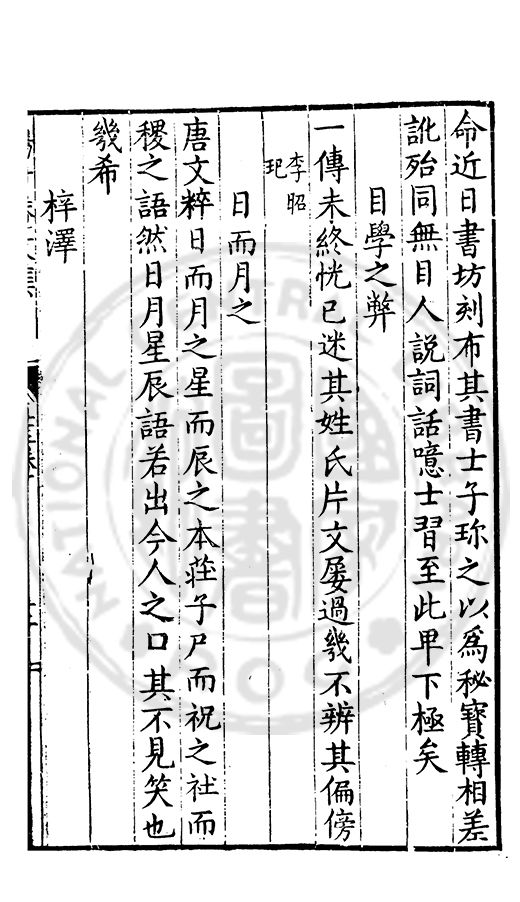 命近日書坊刻布其書士子珎之以為秘寶轉相差
訛殆同無目人說詞話噫士習至此卑下極矣
目學之弊
一傳未終恍已迷其姓氏片文屡過幾不辨其偏傍
李昭
玘
日而月之
唐文粹日而月之星而辰之本莊子尸而祝之社而
稷之語然日月星辰語若出今人之口其不見笑也
幾希
梓澤